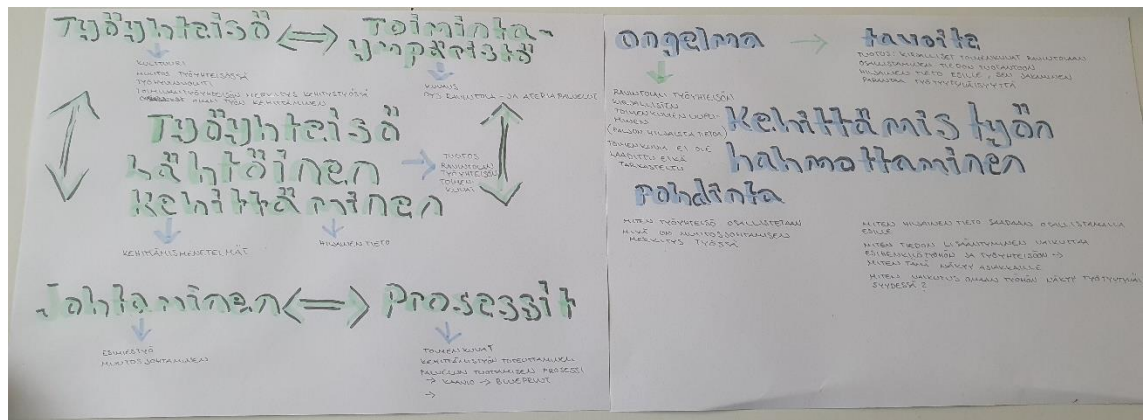 Työyhteisö <=> Toiminta-
ympäristö
KULTTUURI
MUUTOS TYÖYHTEISÖSSÄ
TYÖHYVINVOINTI
TOIMIVAN TYÖYHTEISÖN MERKITYS KEHITYSTYÖSSÄ
OMAN TYÖN KEHITTÄMINEN
KUVAUS
RAVINTOLA- JA ATERIAPALVELUT
Työyhteisö
lähtöinen
Kehittäminen
TUOTOS
RAVINTOLAN
TYÖYHTEISÖN
TOIMEN-
KUVAT
KEHITTÄMISMENETELMÄT
HILJAINEN TIETO
Johtaminen <=> Prosessit
ESIMIESTYÖ
MUUTOSJOHTAMINEN
TOIMENKUVAT
KEHITTÄMISTYÖN TOTEUTTAMINEN
PALVELUN TUOTTAMISEN PROSESSI
-> KAAVIO -> BLUEPRINT
->
ongelma -> tavoite
TUOTOS: KIRJALLISET TOIMENKUVAT RAVINTOLAAN
OSALLISTAMINEN TIEDON TUOTANTOON
HILJAINEN TIETO ESILLE, SEN JAKAMINEN
PARANTAA TYÖTYYTYVÄISYYTTÄ
RAVINTOLAN TYÖYHTEISÖN
KIRJALLISTEN
TOIMENKUVIEN PUUTTU-
MINEN
(PALJON HILJAISTA TIETOA)
TOIMENKUVIA EI OLE
LAADITTU EIKÄ
TARKASTELTU
Kehittämistyön
hahmottaminen
Pohdinta
MITEN TYÖYHTEISÖ OSALLISTETAAN
MIKÄ ON MUUTOSJOHTAMISEN
MERKITYS TYÖSSÄ
MITEN HILJAINEN TIETO SAADAAN OSALLISTAMALLA
ESILLE
MITEN TIEDON LISÄÄNTYMINEN VAIKUTTAA
ESIHENKILÖTYÖHÖN JA TYÖYHTEISÖÖN ->
MITEN TÄMÄ NÄKYY ASIAKKAILLE
MITEN VAIKUTUS OMAAN TYÖHÖN NÄKYY TYÖTYYTYVÄI
SYYDESSÄ?